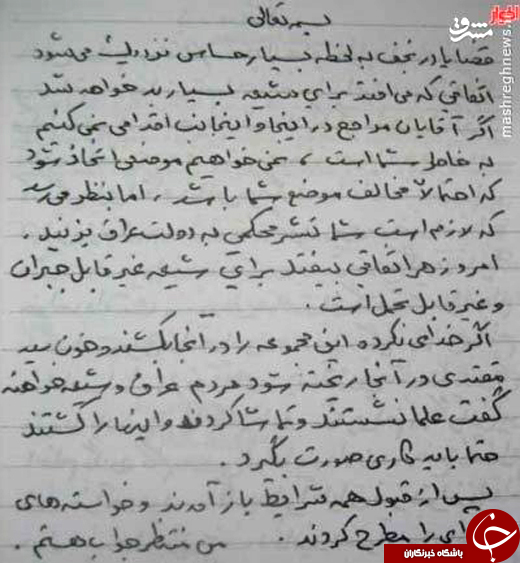 بسمه تعالی
اخبار
مشرق
mashreghnews.ir
قضایا در نجف به لحظه بسیار حساس نزدیک می‌شود
اتفاقی که می افتد برای شیعه بسیار بد خواهد شد
اگر آقایان مراجع در اینجا و اینجانب اقدامی نمی کنیم
به خاطر شما است ، نمی خواهیم موضعی اتخاذ شود
که احتمالاً مخالف موضع شما باشد . اما بنظر می رسد
که لازم است شما تشر محکمی به دولت عراق بزنید .
امروز هر اتفاقی بیفتد برای شیعه غیر قابل جبران
و غیر قابل تحمل است .
اگر خدای نکرده این مجموعه را در آنجا بکشند و خون سید
مقتدی در آنجا ریخته شود مردم عراق و شیعه خواهند
گفت علما نشستند و تماشا کردند و اینها را کشتند
حتما باید کاری صورت بگیرد .
پس از قبول همه شرایط باز آمدند و خواسته های
ای را مطرح کردند . من منتظر جواب هستم .
باشگاه خبرنگاران